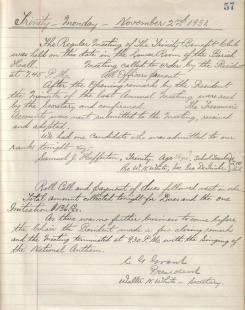 57
Trinity - Monday - November 2nd 1931
The Regular Meeting of The Trinity Benefit Club
was held on this date in the Lower Room of the Parish
Hall. Meeting called to order by the President
at 7.45 P.M. All Officers present.
After the Opening remarks by the President
the Minutes of the last Annual Meeting were read
by the Secretary and confirmed. The Treasurer's
Accounts were next submitted to the Meeting, received
and adopted.
We had one candidate who was admitted to our
ranks tonight
Samuel J. Trinity. Age
Roll Call and payment of dues followed next in order
Total amount collected tonight for Dues and the one
Initiation
As there was no further business to come before
the Chair the President made a few closing remarks
and the Meeting terminated at 9.30 P.M. with the singing of
the National Anthem.
C. G. Grant
President
Walter K. White - Secretary.